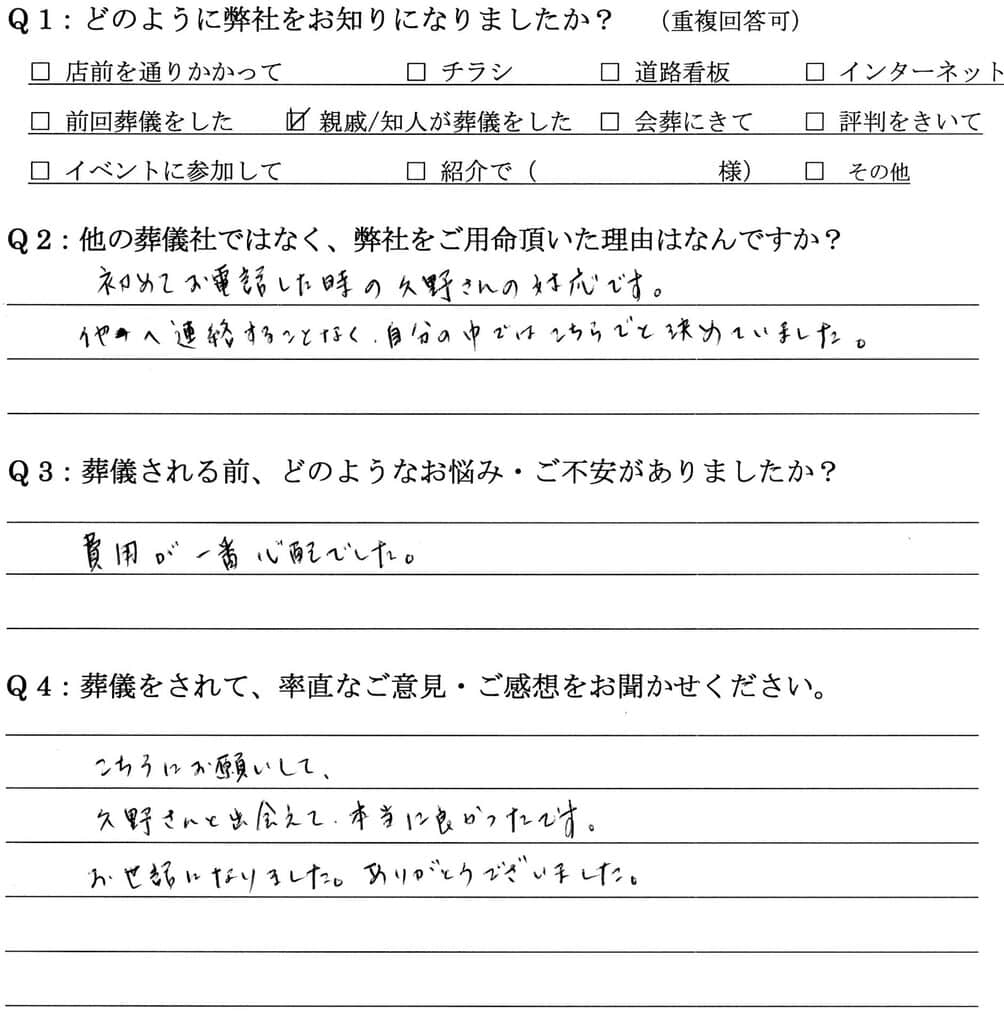 Q1：どのように弊社をお知りになりましたか？ （重複回答可）
□ 店前を通りかかって □ チラシ □ 道路看板 □ インターネット
□ 前回葬儀をした ☑ 親戚/知人が葬儀をした □ 会葬にきて □ 評判をきいて
□ イベントに参加して □ 紹介で（ 様） □ その他
Q2：他の葬儀社ではなく、弊社をご用命頂いた理由はなんですか？
初めてお電話した時の久野さんの対応です。
他へ連絡することなく、自分の中ではこちらでと決めていました。
Q3：葬儀される前、どのようなお悩み・ご不安がありましたか？
費用が一番心配でした。
Q4：葬儀をされて、率直なご意見・ご感想をお聞かせください。
こちらにお願いして、
久野さんと出会えて、本当に良かったです。
お世話になりました。ありがとうございました。